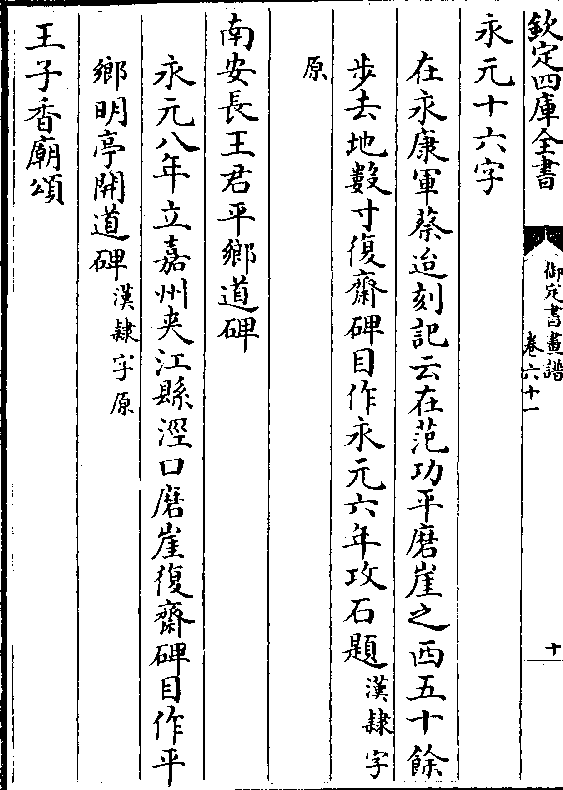 欽定四庫全書
御定書畫譜
卷六十一
十
永元十六字
在永康軍蔡迨刻記云在范功平磨崖之西五十餘
步去地數寸復齋碑目作永元六年攻石題漢隸字
原
南安長王君平鄉道碑
永元八年立嘉州夾江縣涇口磨崖復齋碑目作平
鄉明亭開道碑漢隸字原
王子香廟頌